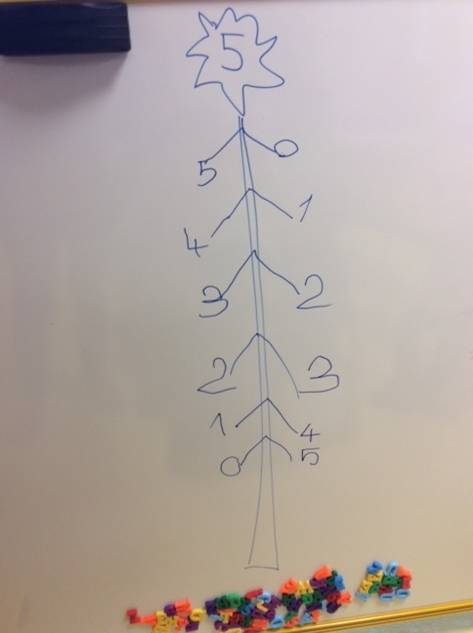 5
5 0
4 1
3 2
2 3
1 4
0 5